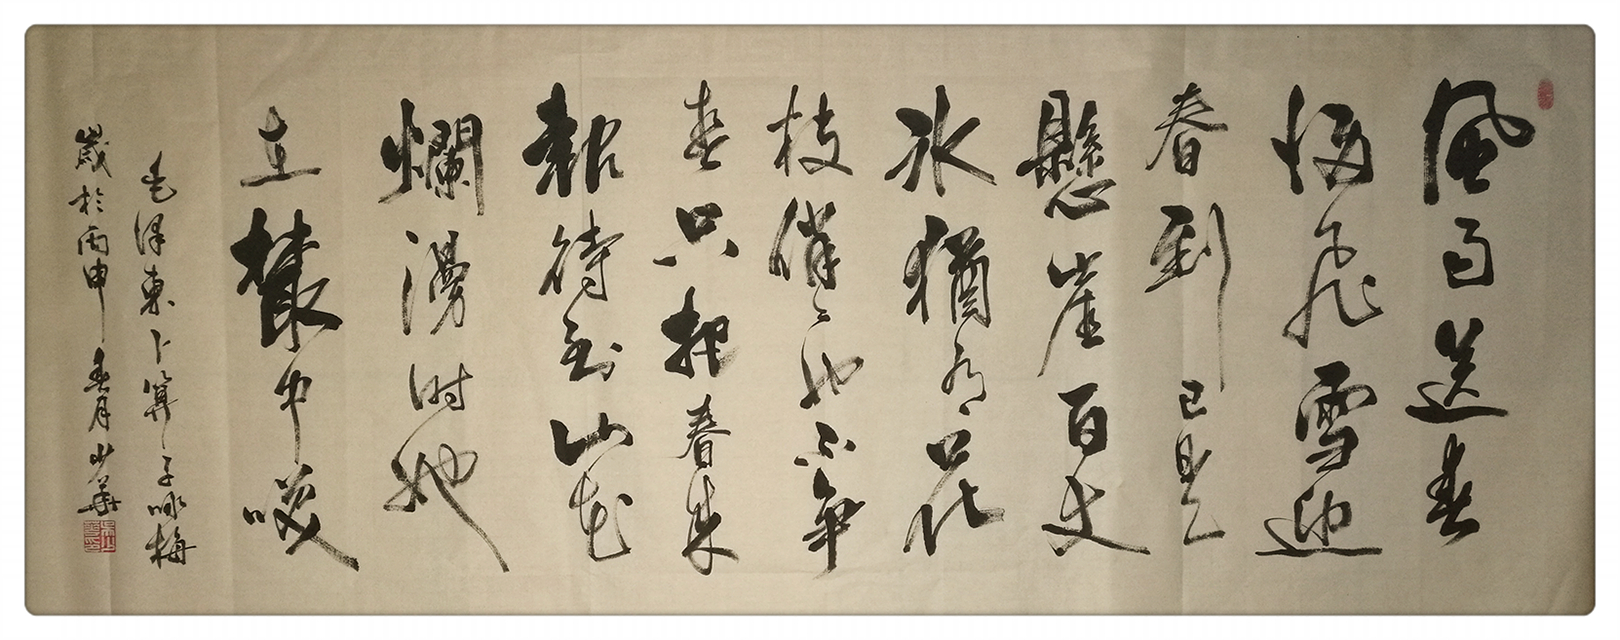 風雨送春
歸飛雪迎
春到已是
懸崖百丈
冰猶有花
枝俏〻也不爭
春只把春來
報待到山花
爛漫时她
在叢中咲
毛澤東卜算子咏梅
歲於丙申春月少華